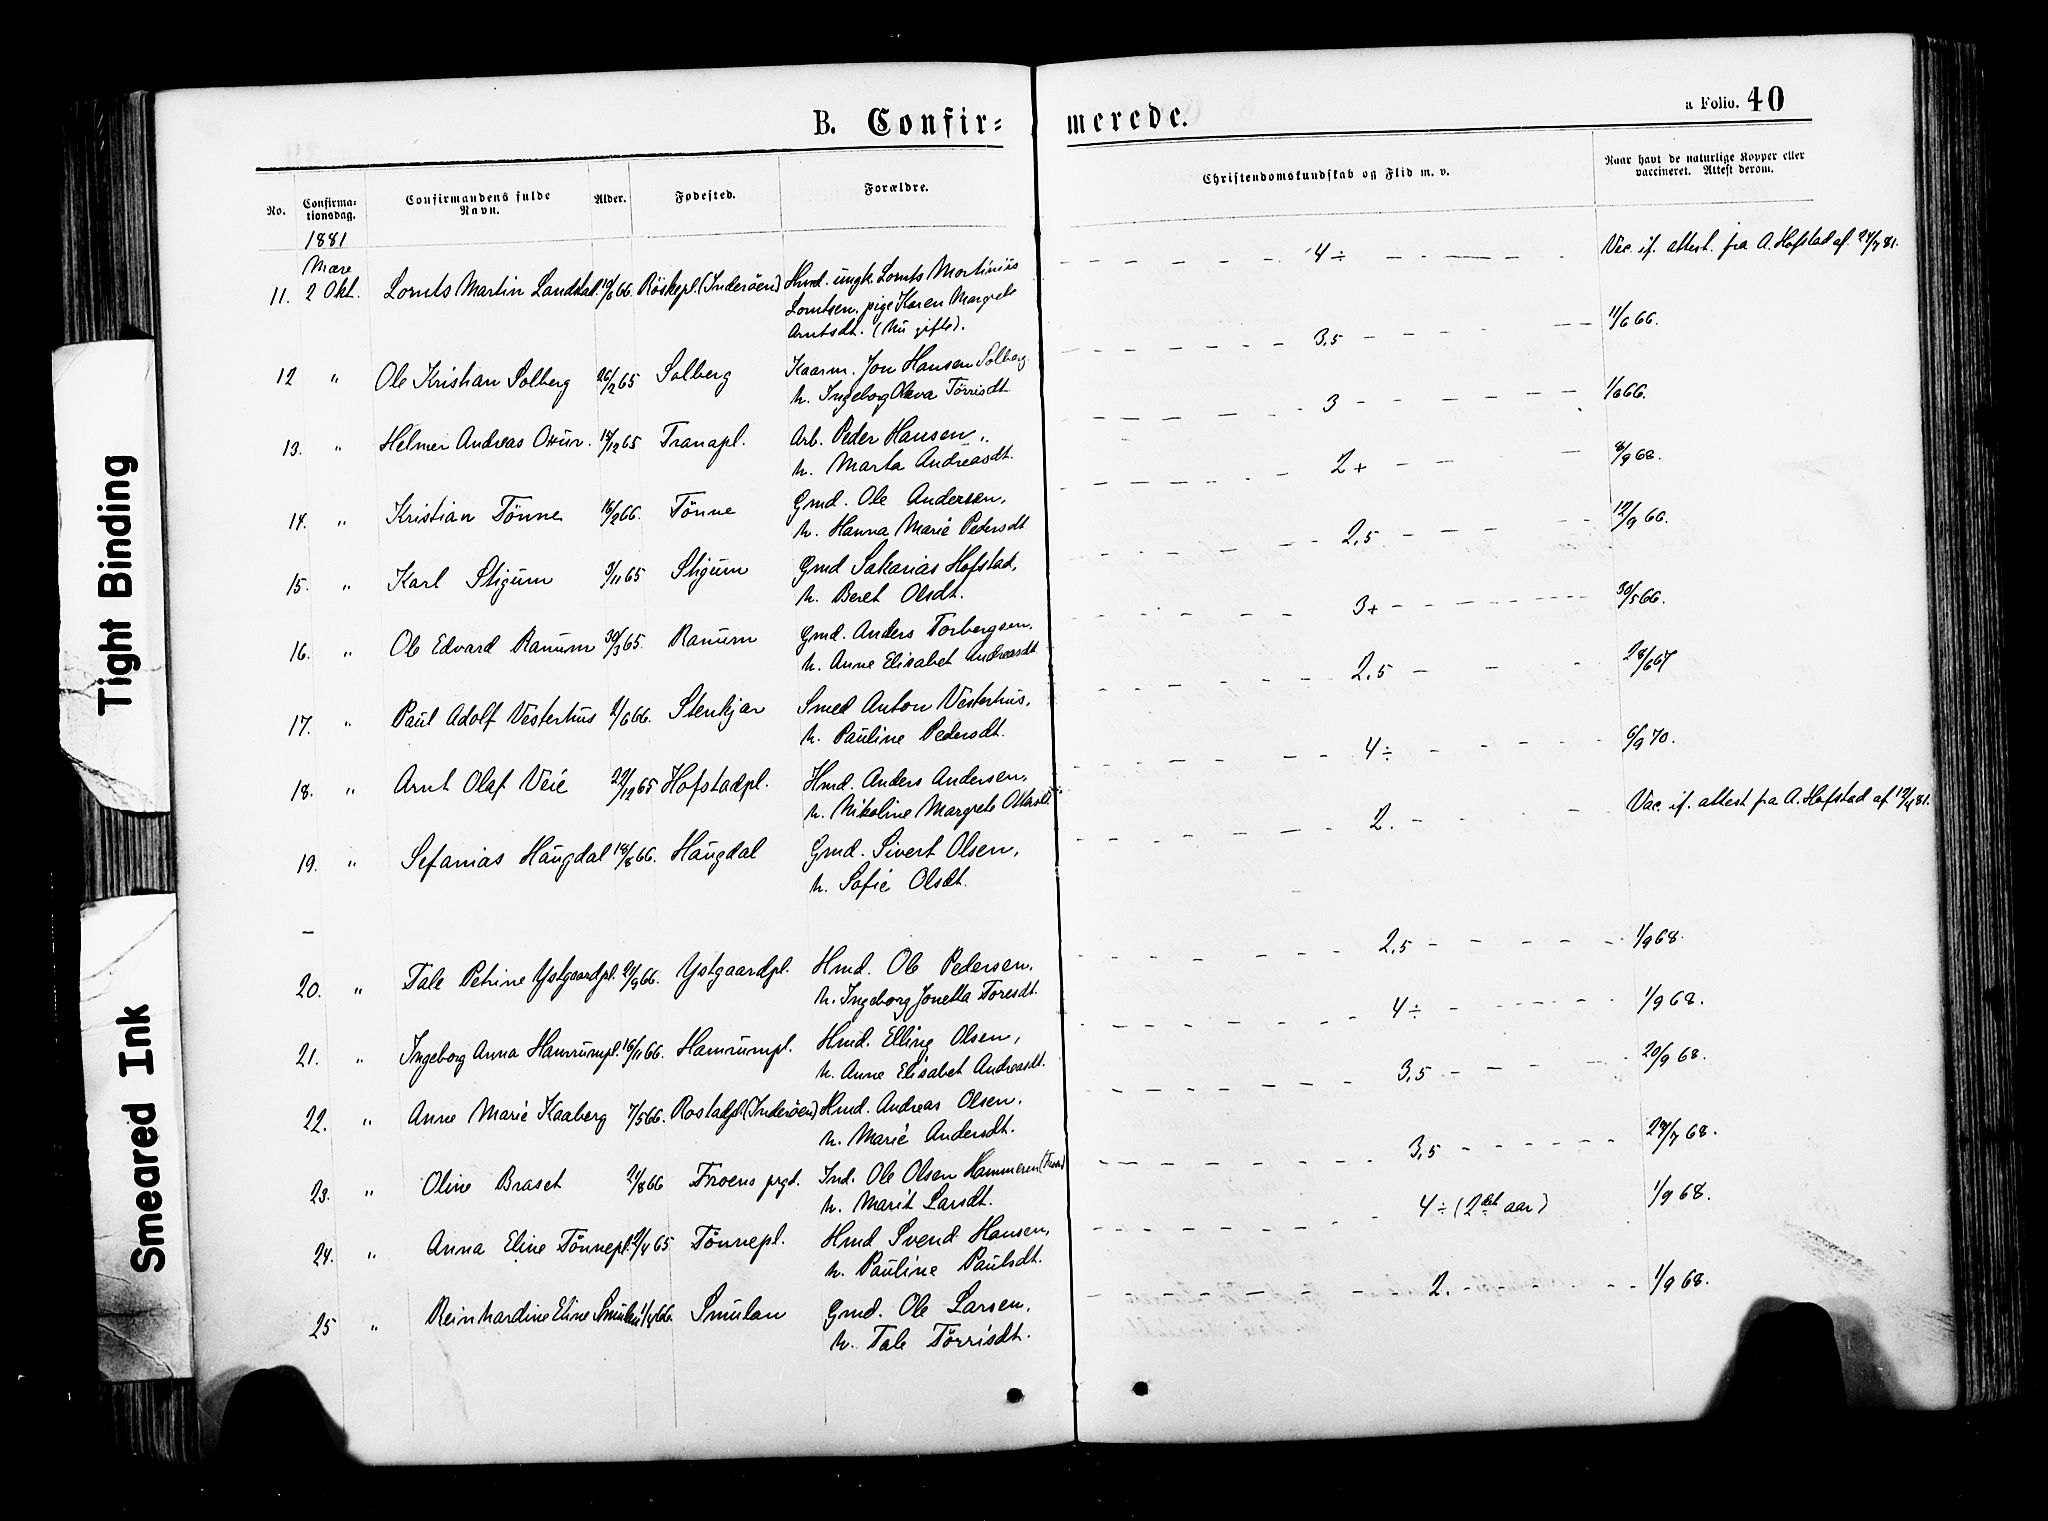 B. Confir=
merede.
a Folio. 40
No.
Confirma-
tionsdag.
Confirmandens fulde
Navn.
Alder.
Fødested.
Forældre.
Christendomskundskab og Flid m. v.
Naar havt de naturlige Kopper eller
vaccineret. Attest derom.
1881
Mære
11. 2 Okt. Lornts Martin Landstad 66. Röskepl. (Inderöen) Hmd. ungk. Lornts Mortinius
Lorntsen, pige Karen Margrete
Arntsdt. (Nu gifte).
4 ÷ Vac. if. attest. fra A. Hofstad af 81.
12 " Ole Kristian Solberg 26/2 65 Solberg Kaarm. Jon Hansen Solberg
h. Ingeborg Olava Törrisdt
3,5 11/6 66.
13. " Helmer Andreas 65 Tranapl. Arb. Peder Hansen,
h. Marta Andreasdt.
3 1/6 66.
14. " Kristian Tönne 16/2 66. Tönne Gmd. Ole Andersen,
h. Hanna Marie Pedersdt
2+ 8/9 68.
15. " Karl Stigum 3/11 65 Stigum Gmd Sakarias Hofstad,
h. Beret Olsdt.
2,5 12/9 66.
16. " Ole Edvard Ranum 30/3 65. Ranum Gmd. Anders Torbergsen,
h. Anne Elisabet Andreasdt
3+ 30/5 66.
17. " Paul Adolf Vesterhus 2/6 66. Stenkjær Smed Anton Vesterhus,
h. Pauline Pedersdt.
2,5 28/6 67
18. " Arnt Olaf Veie 22/12 65 Hofstadpl. Hmd. Anders Andersen,
h. Nikoline Margrete
4 ÷ 6/9 70.
19. " Sefanias Haugdal 18/8 66. Haugdal Gmd. Sivert Olsen,
h. Sofie Olsdt.
2. Vac. if. attest fra A. Hofstad af 12/4 81.
20. " Tale Petrine Ystgaardpl. 21/9 66. Ystgaardpl. Hmd. Ole Pedersen,
h. Ingeborg Jonetta Toresdt.
2,5 1/9 68.
21. " Ingeborg Anna Hamrumpl. 16/11 66. Hamrumpl. Hmd. Elling Olsen,
h. Anne Elisabet Andreasdt.
4 ÷ 1/9 68.
22. " Anne Marie Kaaberg 7/5 66. Rostadpl (Inderöen) Hmd. Andreas Olsen,
h. Marie Andersdt.
3,5 20/9 68.
23. " Oline Braset 2/8 66 Froens prgd. Ind. Ole Olsen Hammeren
h. Marit Larsdt.
3,5 68.
24. " Anna Eline Tönnepl. 2/4 65 Tönnepl. Hmd Svend Hansen,
h. Pauline Paulsdt.
4 ÷ (2det aar) 1/9 68.
25 " Reinhardine Eline Smulan 1/4 66. Smulan Gmd. Ole Larsen,
h. Tale Törrisdt.
2. 1/9 68.
Tight Binding
Smeared Ink